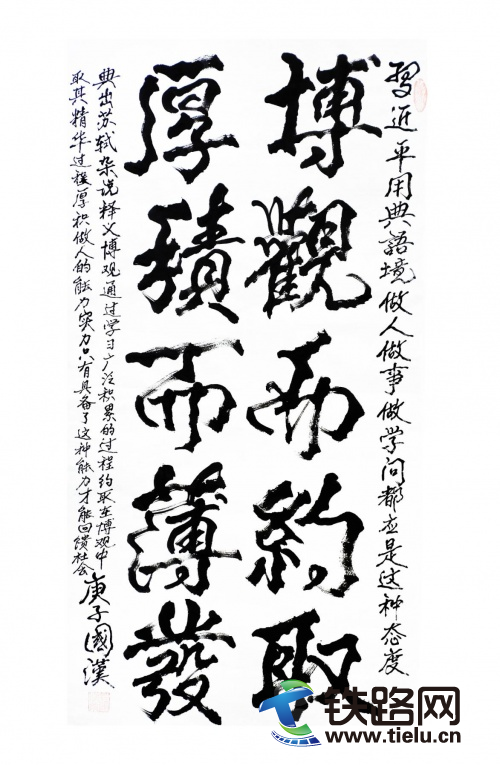 习近平用典語境做人做事做学问都应是这种态度
博觀而約取
厚積而薄發
典出苏轼杂说释义博观通过学习广泛积累的过程约取在博观中
取其精华过程厚积做人的能力实力只有具备了这种能力才能回馈社会
庚子國漢
铁路网
www.tielu.cn